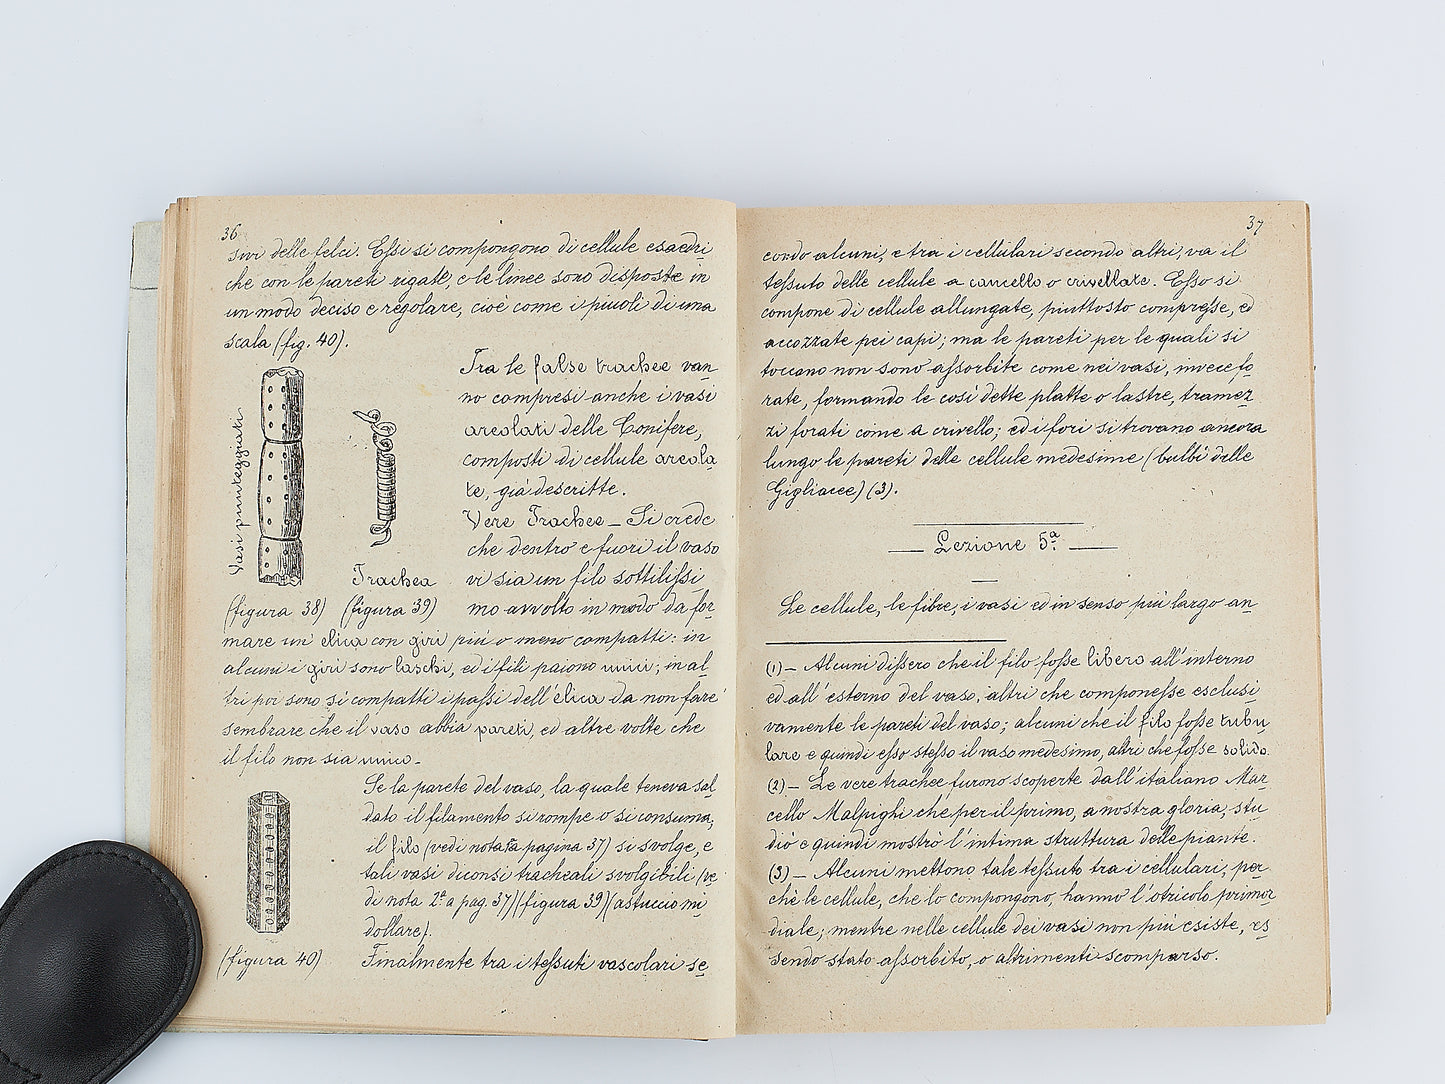 36
sivi delle felci. Essi si compongono di cellule esaedri
che con le pareti rigate, e le linee sono disposte in
un modo deciso e regolare, cioè come i piuoli di una
scala (fig. 40).
Vasi punteggiati
Trachea
(figura 38) (figura 39)
Tra le false trachee van
no compresi anche i vasi
areolati delle Conifere,
composti di cellule areola
te, già descritte.
Vere Trachee _ Si crede
che dentro e fuori il vaso
vi sia un filo sottilissi
mo avvolto in modo da for
mare un' elica con giri più o meno compatti: in
alcuni i giri sono laschi, ed i fili paiono unici; in al
tri poi sono sì compatti i passi dell'elica da non fare
sembrare che il vaso abbia pareti, ed altre volte che
il filo non sia unico.
Se la parete del vaso, la quale teneva sal
dato il filamento si rompe o si consuma,
il filo (vedi nota 1ª a pagina 37) si svolge, e
tali vasi diconsi tracheali svolgibili (ve
di nota 2ª a pag. 37) (figura 39) (astuccio mi
dollare).
(figura 40)
Finalmente tra i tessuti vascolari se
37
condo alcuni, e tra i cellulari secondo altri, va il
tessuto delle cellule a cancello o crivellate. Esso si
compone di cellule allungate, piuttosto compresse, ed
accozzate pei capi; ma le pareti per le quali si
toccano non sono assorbite come nei vasi, invece fo
rate, formando le così dette platte o lastre, tramez
zi forati come a crivello; ed i fori si trovano ancora
lungo le pareti delle cellule medesime (bulbi delle
Gigliacee) (3).
Lezione 5ª
Le cellule, le fibre, i vasi ed in senso più largo an
(1) — Alcuni dissero che il filo fosse libero all'interno
ed all'esterno del vaso, altri che componesse esclusi
vamente le pareti del vaso; alcuni che il filo fosse tubu
lare e quindi esso stesso il vaso medesimo, altri che fosse solido.
(2) — Le vere trachee furono scoperte dall'italiano Mar
cello Malpighi che per il primo, a nostra gloria, stu
diò e quindi mostrò l'intima struttura delle piante.
(3) — Alcuni mettono tale tessuto tra i cellulari, per
chè le cellule, che lo compongono, hanno l'otricolo primor
diale; mentre nelle cellule dei vasi non più esiste, es
sendo stato assorbito, o altrimenti scomparso.